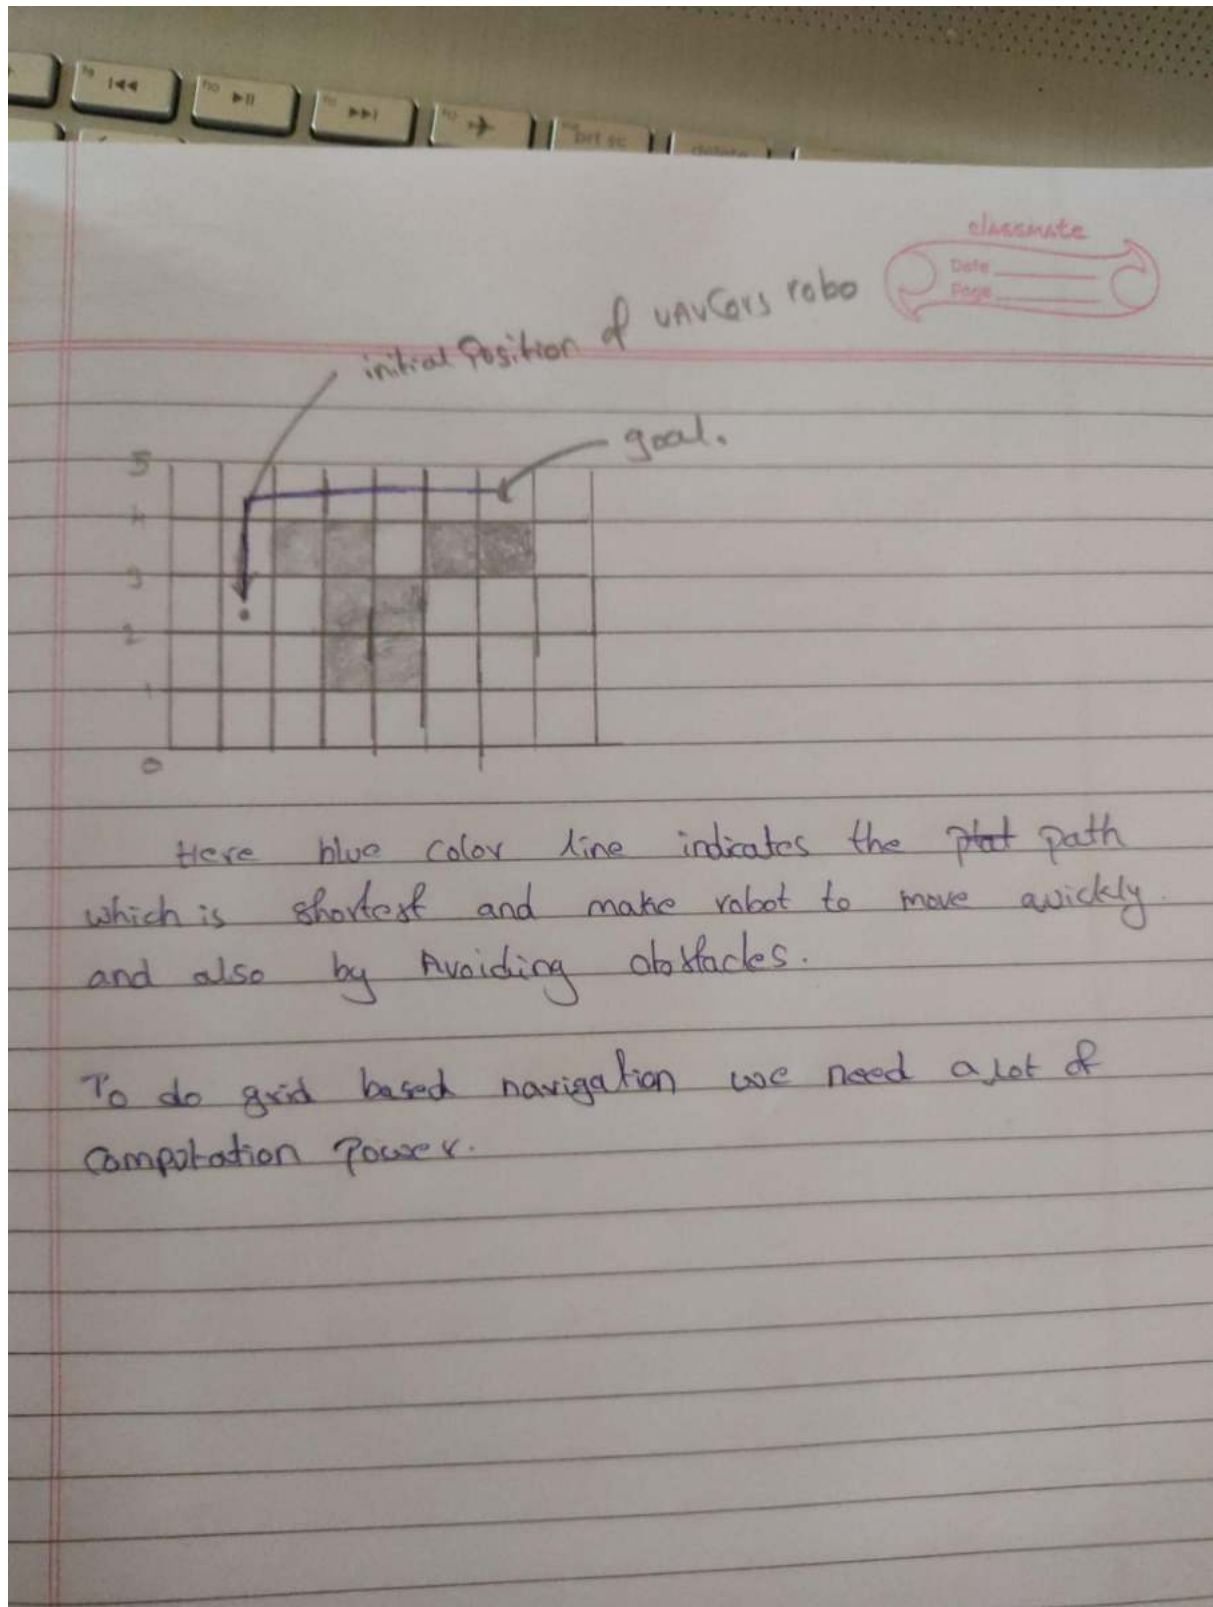 prt sc
delete
classmate
Date
Page
initial Position of robo
goal.
5
4
3
2
1
0
Here blue color line indicates the path
which is shortest and make robot to move quickly
and also by Avoiding obstacles.
To do grid based navigation we need a lot of
Computation Power.